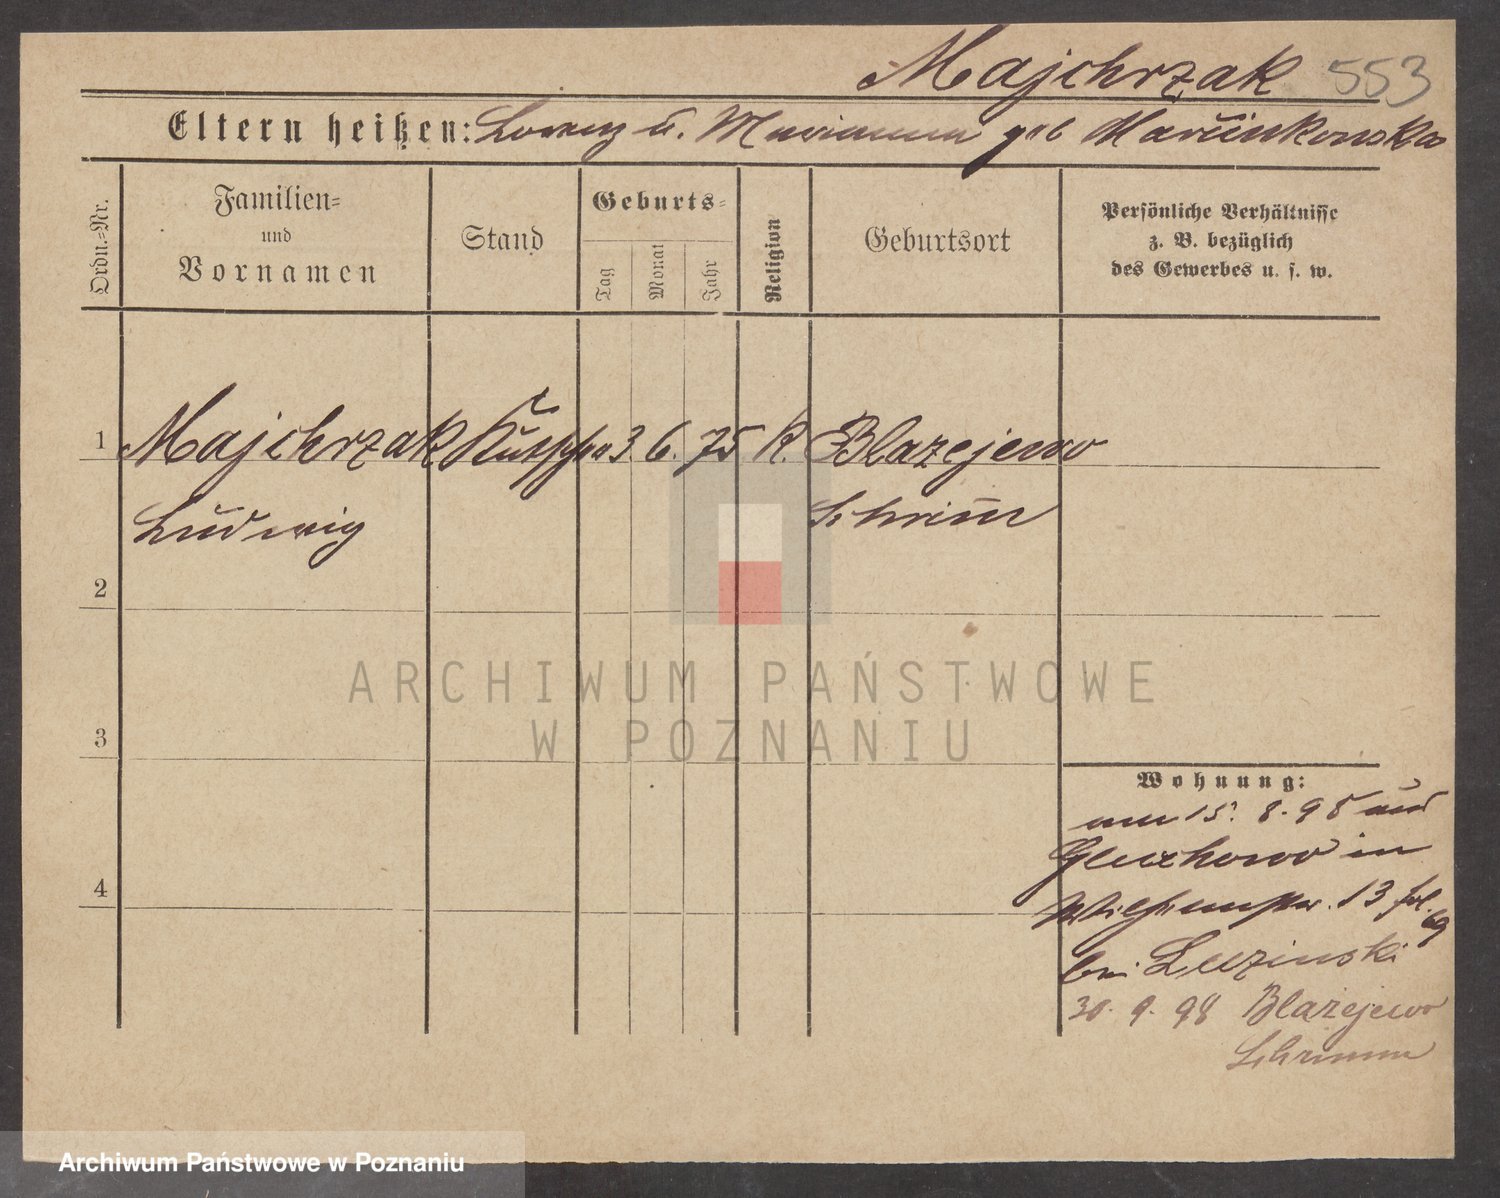 Majchrzak 553
Eltern heißen: Lorenz u. Marianna geb Marcinkowska
Ordn.=Nr.
Familien=
und
Vornamen
Stand
Geburts=
Tag
Monat
Jahr
Religion
Geburtsort
Persönliche Verhältnisse
z. B. bezüglich
des Gewerbes u. s. w.
1 Majchrzak Kutscher 3 6. 75 k. Blazejewo
Ludwig Schrim̄
2
3
4
Wohnung:
am 15. 8. 98 aus
Gluchowo in
Wilhelmstr. 13 fol. 69
bei Luzinski
30. 9. 98 Blazejewo
Schrimm
ARCHIWUM PAŃSTWOWE
W POZNANIU
Archiwum Państwowe w Poznaniu